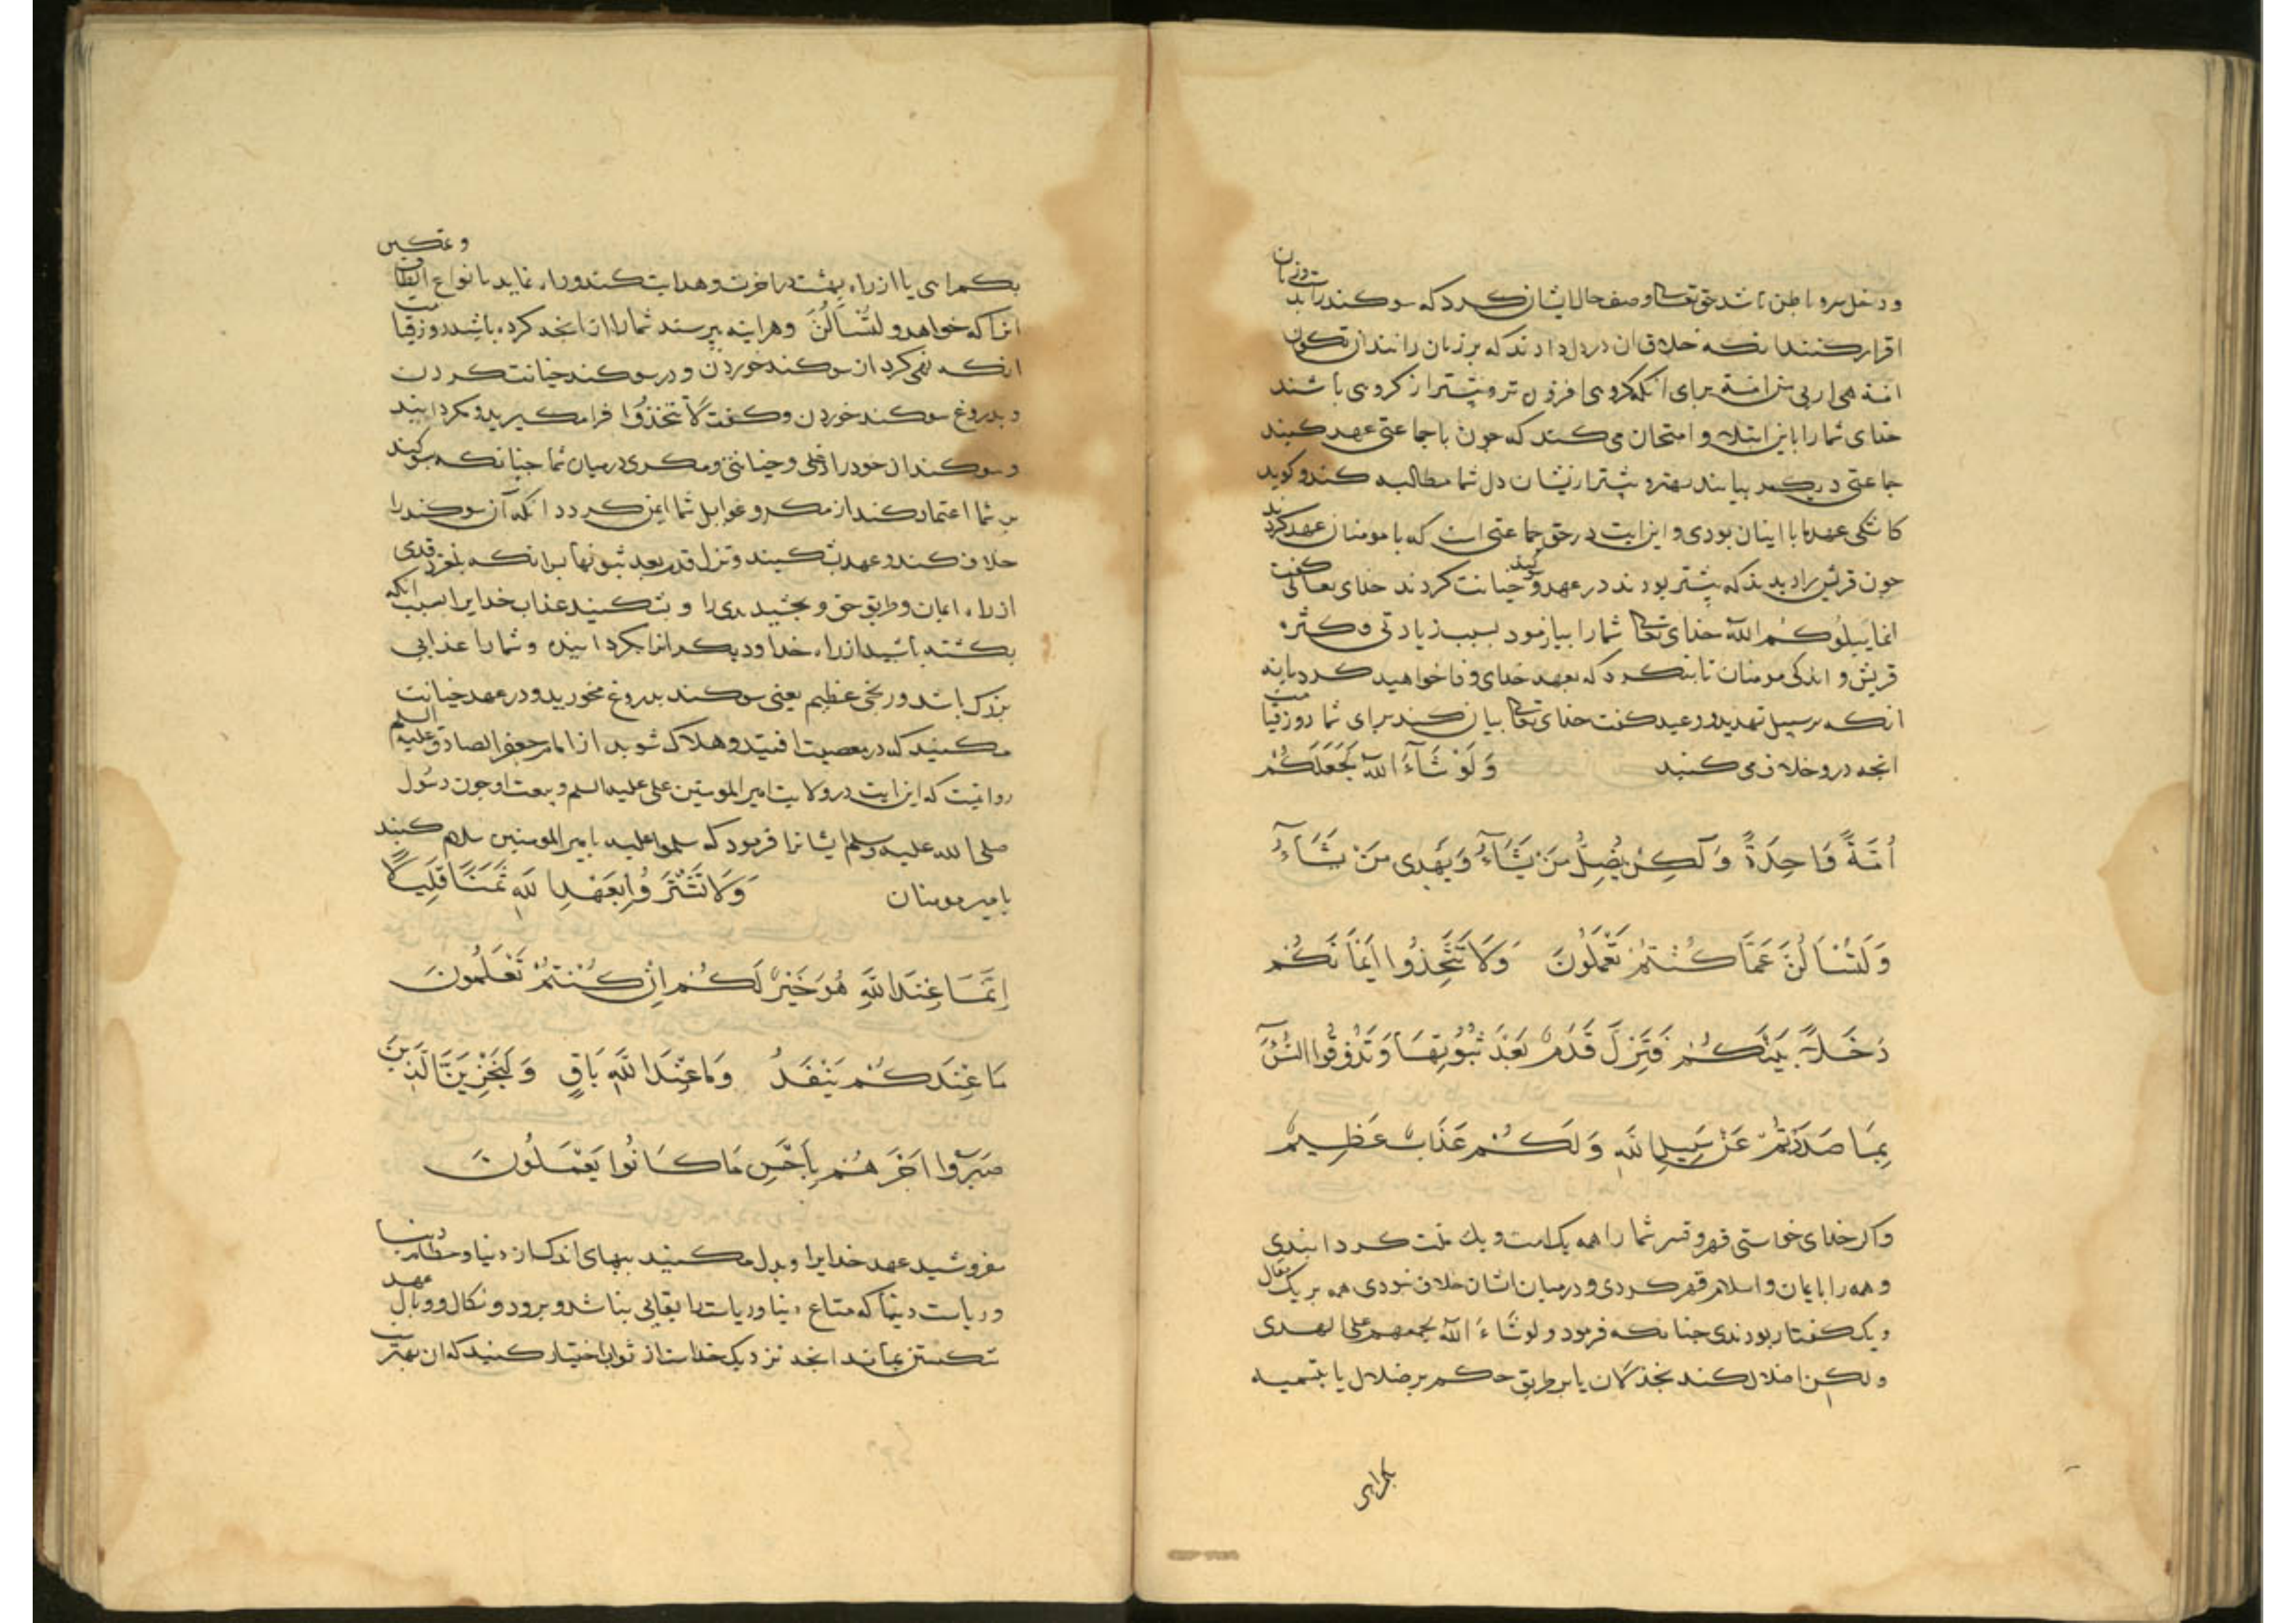 و دخل سر و باطن باشد حق تعالی وصف حال ایشان کرد که سوکند راست و زبان بد
اقرار کنند بانکه خلاف ان در دل دارند که بر زبان رانند ان تکون
امة هی اربی من امة برای انکه کروهی افزون تر و بیشتر از کروهی باشند
خدای شما را باین ابتلا و امتحان می کند که چون با جماعتی عهد کنید
جماعتی دیکر بیایند بهتر و بیشتر ازیشان دل شما مطالبه کند و کوید
کاشکی عهد ما با اینان بودی و این ایت در حق جماعتی است که با مومنان عهد کردند
چون قریش را دیدند که بیشتر بودند در عهد و سوکند خیانت کردند خدای تعالی کفت
انما یبلوکم الله خدای تعالی شما را بیازمود بسبب زیادتی و کثره
قریش و اندکی مومنان تا بنکرد که بعهد خدای وفا خواهید کرد یا نه
انکه بر سبیل تهدید و وعید کفت خدای تعالی بیان کند برای شما روز قیامت
انچه درو خلاف می کنید وَلَوْ شَآءَ اللهُ لَجَعَلَكُمْ
اُمَّةً وَاحِدَةً وَلَكِن يُضِلُّ مَنْ يَشَآءُ وَيَهْدِى مَنْ يَشَآءُ
وَلَتُسْاَلُنَّ عَمَّا كُنْتُمْ تَعْمَلُونَ وَلَا تَتَّخِذُوا اَيْمَانَكُم
دَخَلاً بَيْنَكُمْ فَتَزِلَّ قَدَمٌ بَعْدَ ثُبُوتِهَا وَتَذُوقُوا السُّوٓءَ
بِمَا صَدَدْتُمْ عَنْ سَبِيلِ اللهِ وَلَكُمْ عَذَابٌ عَظِيمٌ
و اکر خدای خواستی قهر و قسر شما را همه یک امت و یک ملت کردانیدی
و همه را بایمان و اسلام قهر کردی و در میان اشان خلاف نبودی همه بر یک مقال
و یک کفتار بودندی چنانکه فرمود و لو شاء الله لجمعهم علی الهدی
و لکن اضلال کند بخذلان یا بر طریق حکم بر ضلال یا بتسمیه
بکمراهی
بکمراهی یا از راه بهشت در اخرت و هدایت کند و راه نماید بانواع الطاف و تمکین
انرا که خواهد و لتسالن و هراینه بپرسند شما را از انچه کرده باشید روز قیامت
انکه نهی کرد از سوکند خوردن و در سوکند خیانت کردن
و بدروغ سوکند خوردن و کفت لا تتخذوا فرا مکیرید و مکردانید
و سوکندان خود را دغلی و خیانتی و مکری درمیان شما چنانکه سوکند
بر شما اعتماد کند از مکر و غوایل شما ایمن کردد انکه آن سوکند را
خلاف کند و عهد بشکنید فتزل قدم بعد ثبوتها پس انکه بلغزد قدمی
از راه ایمان و طریق حق و بچشید بدی را و بشکنید عذاب خدایرا بسبب انکه
بکشته باشید از راه خدا و دیکرانرا بکردانیده و شما را عذابی
بزرک باشد و رنجی عظیم یعنی سوکند بدروغ مخورید و در عهد خیانت
مکنید که در معصیت افتید و هلاک شوید از امام جعفر الصادق علیه السلم
روایتست که این ایت در ولایت امیر المومنین علی علیه السلم و بیعت او چون رسول
صلی الله علیه وسلم ایشانرا فرمود که سلموا علیه بامیر المومنین سلام کنید
بامیر مومنان وَلَا تَشْتَرُوا بِعَهْدِ اللهِ ثَمَنًا قَلِيلًا
اِنَّمَا عِنْدَ اللهِ هُوَ خَيْرٌ لَكُمْ اِنْ كُنْتُمْ تَعْلَمُونَ
مَا عِنْدَكُمْ يَنْفَدُ وَمَا عِنْدَ اللهِ بَاقٍ وَلَنَجْزِيَنَّ الَّذِينَ
صَبَرُوا اَجْرَهُمْ بِاَحْسَنِ مَا كَانُوا يَعْمَلُونَ
مفروشید عهد خدایرا و بدل مکنید ببهای اندک از دنیا و حطام دنیا
و ریاست دنیا که متاع دنیا و ریاست را بقایی نباشد و برود و نکال و وبال عهد
شکستن بماند انچه نزدیک خداست از ثواب اختیار کنید که ان بهترست